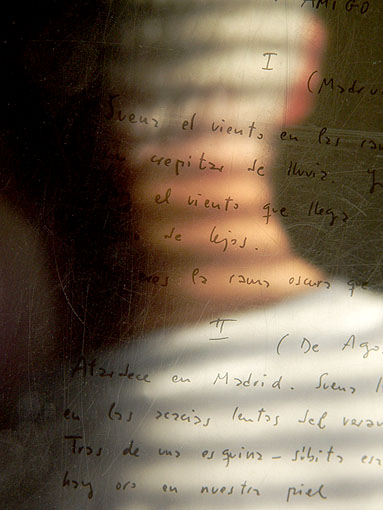 AMIGO
I
(Madru
Suena el viento en las ra
crepitar de lluvia. y
el viento que llega
de lejos.
eres la rama oscura que
II
(De Ago
Atardece en Madrid. Suena l
en las acacias lentas del vera
Tras de una esquina - súbita es
hay oro en nuestra piel